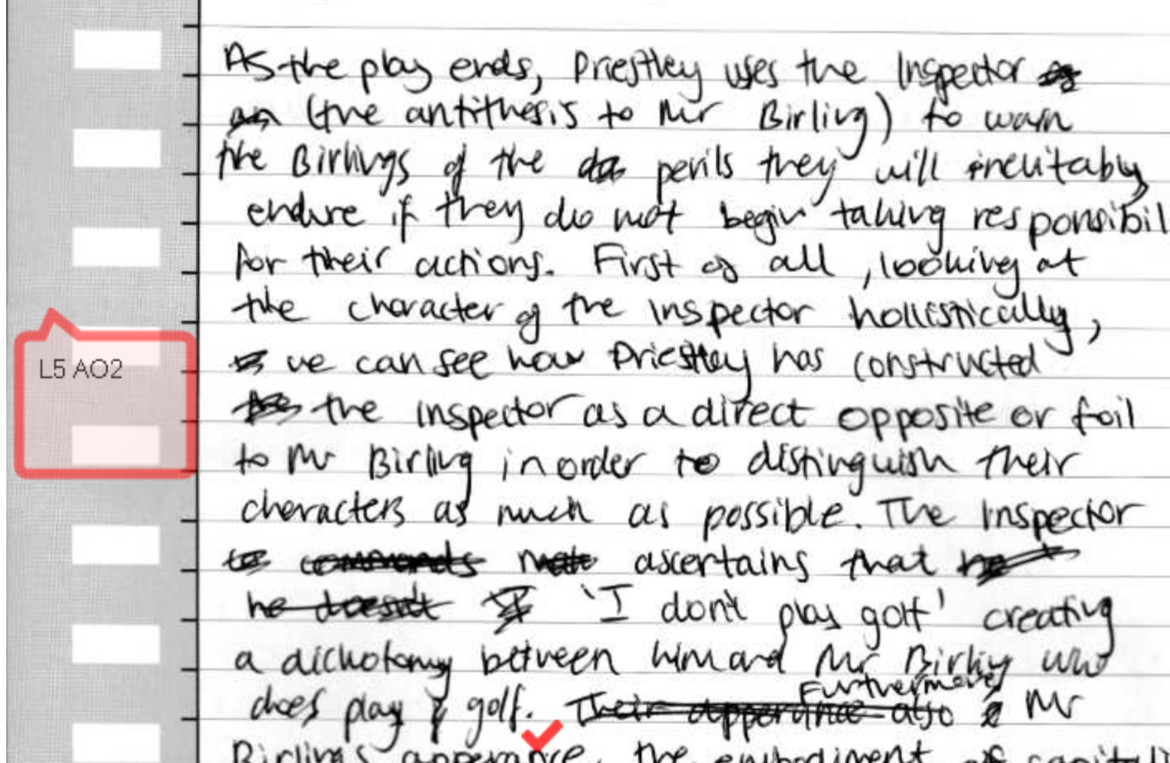 As the play ends, Priestley uses the Inspector
(the antithesis to Mr Birling) to warn
the Birlings of the perils they will inevitably
endure if they do not begin taking responsibil
for their actions. First of all, looking at
the character of the Inspector hollistically,
L5 AO2
we can see how Priestley has constructed
the inspector as a direct opposite or foil
to Mr Birling in order to distinguish their
characters as much as possible. The Inspector
commands ascertains that he
he doesnt I 'I don't play golf' creating
a dichotomy between him and Mr Birling who
Furthermore,
does play golf. Their apperance also Mr
Birling's apperance, the embodiment of capitali